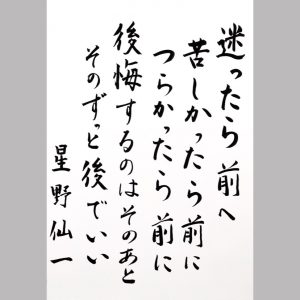 迷ったら前へ
苦しかったら前に
つらかったら前に
後悔するのはそのあと
そのずっと後でいい
星野仙一